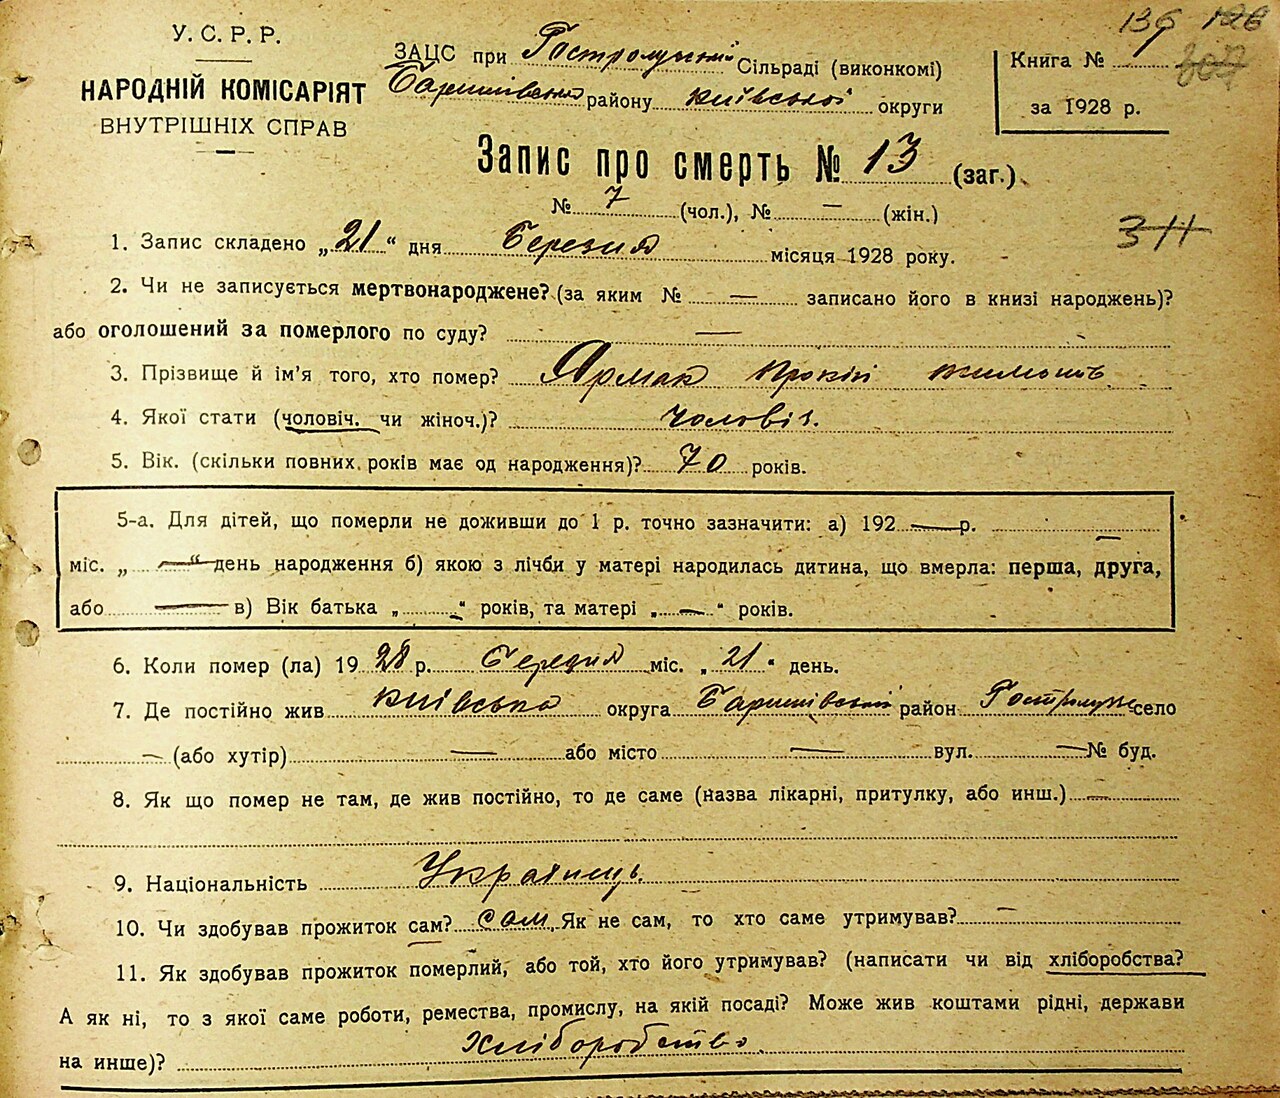 139 126
У. С. Р. Р.
НАРОДНІЙ КОМІСАРІЯТ
ВНУТРІШНІХ СПРАВ
ЗАЦС при Гостролуцькій Сільраді (виконкомі)
Баришівського району Київської округи
Книга №
за 1928 р.
Запис про смерть № 13 (заг.)
№ 7 (чол.), № — (жін.)
311
1. Запис складено „21“ дня Березня місяця 1928 року.
2. Чи не записується мертвонароджене? (за яким № — записано його в книзі народжень)?
або оголошений за померлого по суду? —
3. Прізвище й ім'я того, хто помер? Ярмак Прокіп
4. Якої стати (чоловіч. чи жіноч.)? чоловіч.
5. Вік. (скільки повних років має од народження)? 70 років.
5-а. Для дітей, що померли не доживши до 1 р. точно зазначити: а) 192 — р. —
міс. „ — “ день народження б) якою з лічби у матері народилась дитина, що вмерла: перша, друга,
або — в) Вік батька „ — “ років, та матері „ — “ років.
6. Коли помер (ла) 1928 р. Березня міс. „21“ день.
7. Де постійно жив Київська округа Баришівський район Гостролуччє село
— (або хутір) — або місто — вул. — № буд.
8. Як що помер не там, де жив постійно, то де саме (назва лікарні, притулку, або инш.) —
9. Національність Украінець.
10. Чи здобував прожиток сам? сам. Як не сам, то хто саме утримував? —
11. Як здобував прожиток померлий, або той, хто його утримував? (написати чи від хліборобства?
А як ні, то з якої саме роботи, ремества, промислу, на якій посаді? Може жив коштами рідні, держави
на инше)? Хліборобство.